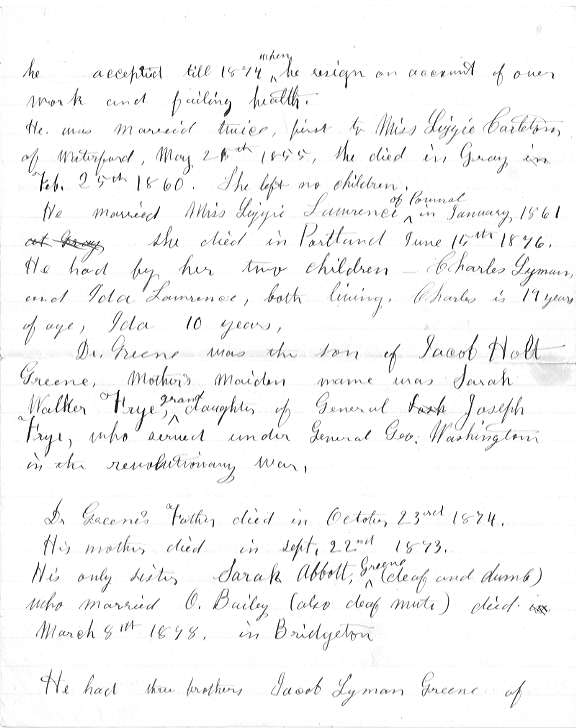 he accepted till 1874 when he resign on account of over
work and failing health.
He was married twice, first to Miss Lizzie Carleton
of Waterford, May 28th 1855, she died in Gray in
Feb. 25th 1860. She left no children.
He married Miss Lizzie Lawrence of Pownal in January, 1861
at Gray she died in Portland June 15th 1876.
He had by her two children - Charles Lyman,
and Ida Lawrence, both living. Charles is 14 years
of age, Ida 10 years,
Dr. Greene was the son of Jacob Holt
Greene, Mother's maiden name was Sarah
Walker Frye, grand daughter of General Joseph
Frye, who served under General Geo. Washington
in the revolutionary war,
Dr Greene's Father died in October 23rd 1874.
His mother died in sept, 22nd 1873.
His only sister Sarah Abbott, Greene (deaf and dumb)
who married O. Bailey (also deaf mute) died in
March 8th 1878. in Bridgeton
He had three brothers Jacob Lyman Greene of